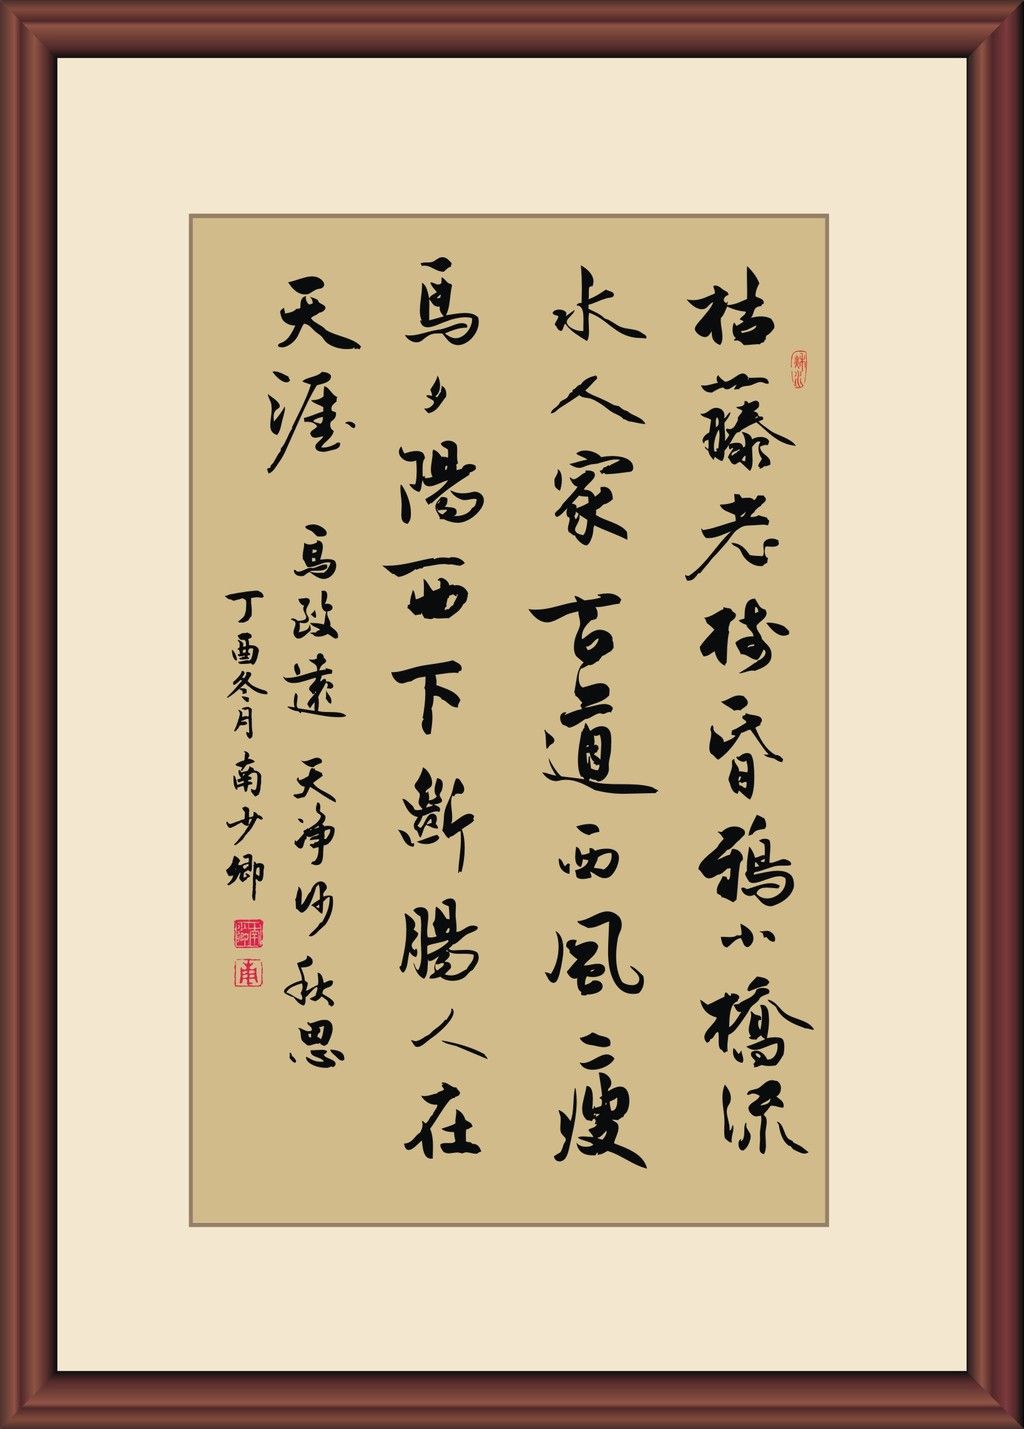 枯藤老樹昏鴉小橋流
水人家古道西風瘦
馬夕陽西下斷腸人在
天涯
馬致遠 天净沙 秋思
丁酉冬月南少卿